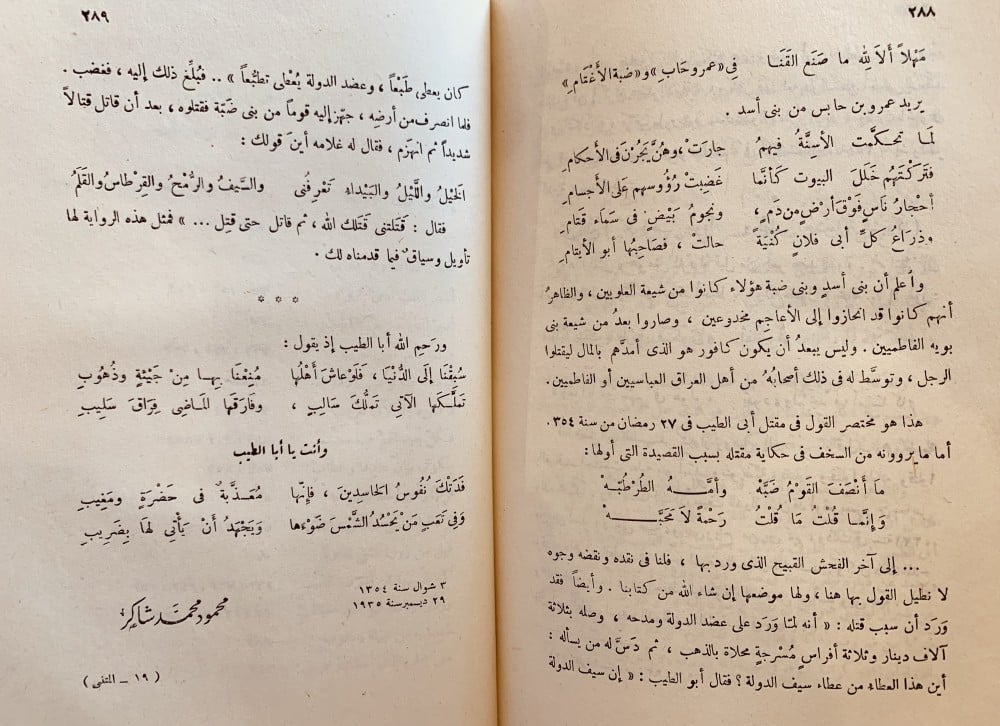 ٢٨٨
مَهْلاً أَلاَ لِلهِ ما صَنَع القَنَا فِي «عمرو حَاب» و«ضبة الأَغْتَامِ»
يريد عمرو بن حابس من بنى أسد .
لمَا تحكَّمت الأسِنَّةُ فيهمُ جارتْ ، وهُنَّ يَجُرْنَ فى الأحكامِ
فتَركتَهُم خَلَلَ البيوت كَأنَّما غَضِبَتْ رُؤُوسهم عَلَى الأجسامِ
أحْجارُ نَاسٍ فَوْقَ أرْضٍ من دَمٍ ، ونجومُ بَيْضٍ فى سَمَاءِ قَتَامِ
وذراعُ كلِّ أبى فلانٍ كُنْيَةً حالتْ ، فصَاحِبُها أبو الأيتامِ
واُعلم أن بنى أسدٍ وبنى ضبة هؤلاء كانوا من شيعة العلويين ، والظاهرُ
أنهم كانوا قد انحازوا إلى الأعاجم مخدوعين ، وصاروا بعدُ من شيعة بنى
بويه الفاطميين . وليس يبعدُ أن يكون كافور هو الذى أمدَّهم بالمال ليقتلوا
الرجل ، وتوسَّط له فى ذلك أصحابُهُ من أهل العراق العباسيين أو الفاطميين .
هذا هو مختصر القول فى مقتل أبى الطيب فى ٢٧ رمضان من سنة ٣٥٤.
أما ما يروونه من السخف فى حكاية مقتله بسبب القصيدة التى أولها :
مَا أَنْصَفَ القَوْمُ ضَبَّهْ وأمَّـــهُ الطُرْطُبَّهْ
وَإِنَّمَا قُلْتُ مَا قُلْتُ رَحْمَةً لاَ مَحَبَّـــهْ
... إلى آخر الفحش القبيح الذى ورد بها ، فلنا فى نقده ونقضه وجوه
لا نطيل القول بها هنا ، ولها موضعها إن شاء الله من كتابنا . وأيضاً فقد
وَرَد أن سبب قتله : « أنه لمّا وَرَد على عضد الدولة ومدحه ، وصله بثلاثة
آلاف دينار وثلاثة أفراس مُسْرجةٍ محلاة بالذهب ، ثم دَسَّ له من يسأله :
أين هذا العطاء من عطاء سيف الدولة ؟ فقال أبو الطيب : « إن سيف الدولة
٢٨٩
كان يعطى طَبْعاً ، وعضد الدولة يُعْطى تطبُّعاً » .. فبُلِّغ ذلك إليه ، فغضب .
فلما انصرف من أرضِه ، جهّز إليه قوماً من بنى ضَبّة فقتلوه ، بعد أن قاتل قتالاً
شديداً ثم انهزم ، فقال له غلامه أينَ قولك :
الخيْلُ واللَّيْلُ والبَيْداء تَعْرِفُنى والسَّيفُ والرُّمْحُ والقِرْطاسُ والقَلَمُ
فقال : قَتَلتنى قَتَلك الله ، ثم قاتل حتى قتِل ... » فمثل هذه الرواية لها
تأويل وسياقٌ فيما قدمناه لك .
* * *
ورَحِمِ الله أبا الطيب إذ يقول :
سُبِقْنَا إلَى الدُّنْيَا ، فَلَوْ عاشَ أهْلُها مُنِعْنَا بِهـا مِنْ جَيْئَةٍ وذُهُوبِ
تَمَلَّكَها الآتِي تَمَلُّكَ سَالِبٍ ، وفارَقَها المَاضِى فِرَاقَ سَلِيبِ
وأنت يا أبا الطيب
فَدَتْكَ نُفُوسُ الحَاسِدِينَ ، فَإِنَّها مُعَذَّبةٌ فى حَضْرَةٍ ومَغِيبِ
وَفِى تَعَبٍ مَنْ يَحْسُدُ الشَّمْسَ ضَوْءَها وَيَجْهَدُ أَنْ يَأْتِى لَهَا بِضَرِيبِ
٣ شوال سنة ١٣٥٤
٢٩ ديسمبر سنة ١٩٣٥
محمود محمد شاكر
( ١٩ ــ المتنبى )